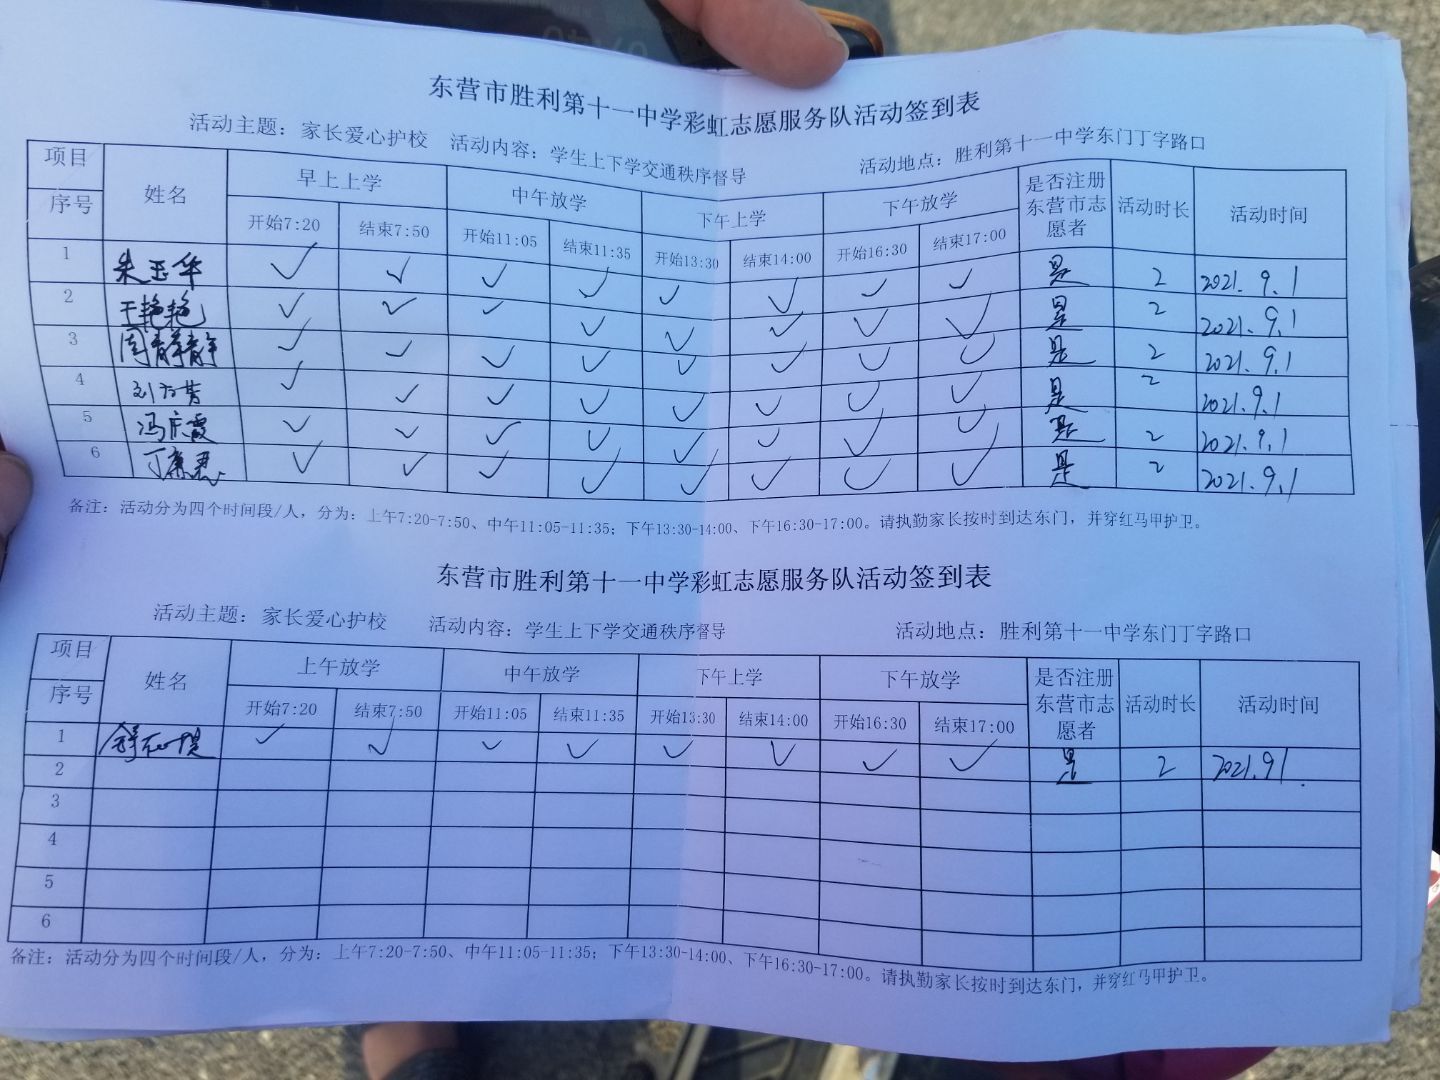 东营市胜利第十一中学彩虹志愿服务队活动签到表
活动主题：家长爱心护校 活动内容：学生上下学交通秩序督导 活动地点：胜利第十一中学东门丁字路口
项目 序号 姓名 早上上学 中午放学 下午上学 下午放学 是否注册东营市志愿者 活动时长 活动时间
开始7:20 结束7:50 开始11:05 结束11:35 开始13:30 结束14:00 开始16:30 结束17:00
1 朱玉华 ✓ ✓ ✓ ✓ ✓ ✓ ✓ ✓ 是 2 2021.9.1
2 王艳艳 ✓ ✓ ✓ ✓ ✓ ✓ ✓ ✓ 是 2 2021.9.1
3 周静静 ✓ ✓ ✓ ✓ ✓ ✓ ✓ ✓ 是 2 2021.9.1
4 ✓ ✓ ✓ ✓ ✓ ✓ ✓ ✓ 是 2 2021.9.1
5 冯庆霞 ✓ ✓ ✓ ✓ ✓ ✓ ✓ ✓ 是 2 2021.9.1
6 ✓ ✓ ✓ ✓ ✓ ✓ ✓ ✓ 是 2 2021.9.1
备注：活动分为四个时间段/人，分为：上午7:20-7:50、中午11:05-11:35；下午13:30-14:00、下午16:30-17:00。请执勤家长按时到达东门，并穿红马甲护卫。
东营市胜利第十一中学彩虹志愿服务队活动签到表
活动主题：家长爱心护校 活动内容：学生上下学交通秩序督导 活动地点：胜利第十一中学东门丁字路口
项目 序号 姓名 上午放学 中午放学 下午上学 下午放学 是否注册东营市志愿者 活动时长 活动时间
开始7:20 结束7:50 开始11:05 结束11:35 开始13:30 结束14:00 开始16:30 结束17:00
1 ✓ ✓ ✓ ✓ ✓ ✓ ✓ ✓ 是 2 2021.91.
2
3
4
5
6
备注：活动分为四个时间段/人，分为：上午7:20-7:50、中午11:05-11:35；下午13:30-14:00、下午16:30-17:00。请执勤家长按时到达东门，并穿红马甲护卫。